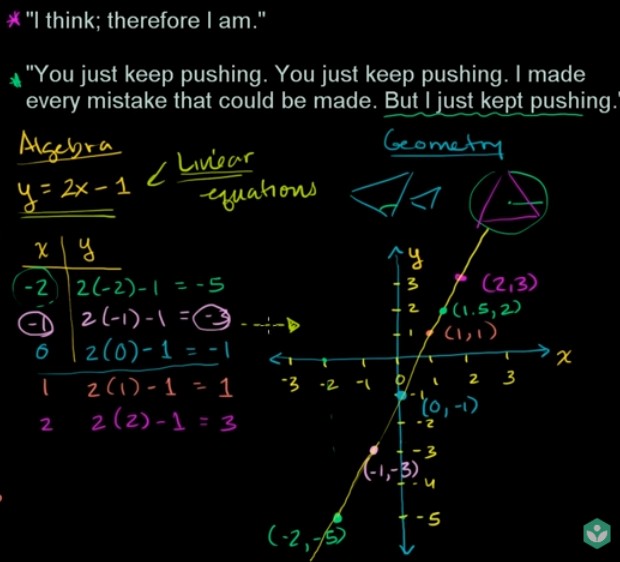 "I think; therefore I am."
"You just keep pushing. You just keep pushing. I made
every mistake that could be made. But I just kept pushing."
Algebra
y = 2x - 1
Linear
equations
Geometry
x y
-2 2(-2)-1 = -5
-1 2(-1)-1 = -3
0 2(0)-1 = -1
1 2(1)-1 = 1
2 2(2)-1 = 3
y
3
2
1
(2,3)
(1.5, 2)
(1,1)
x
-3 -2 -1 0 1 2 3
-1
(0,-1)
-2
-3
(-1,-3)
-4
-5
(-2,-5)